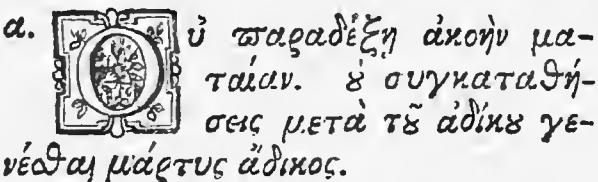 α. Οὐ παραδέξῃ ἀκοὴν μα-
ταίαν. οὐ συγκαταθή-
σεις μετὰ τοῦ ἀδίκου γε-
νέσθαι μάρτυς ἄδικος.